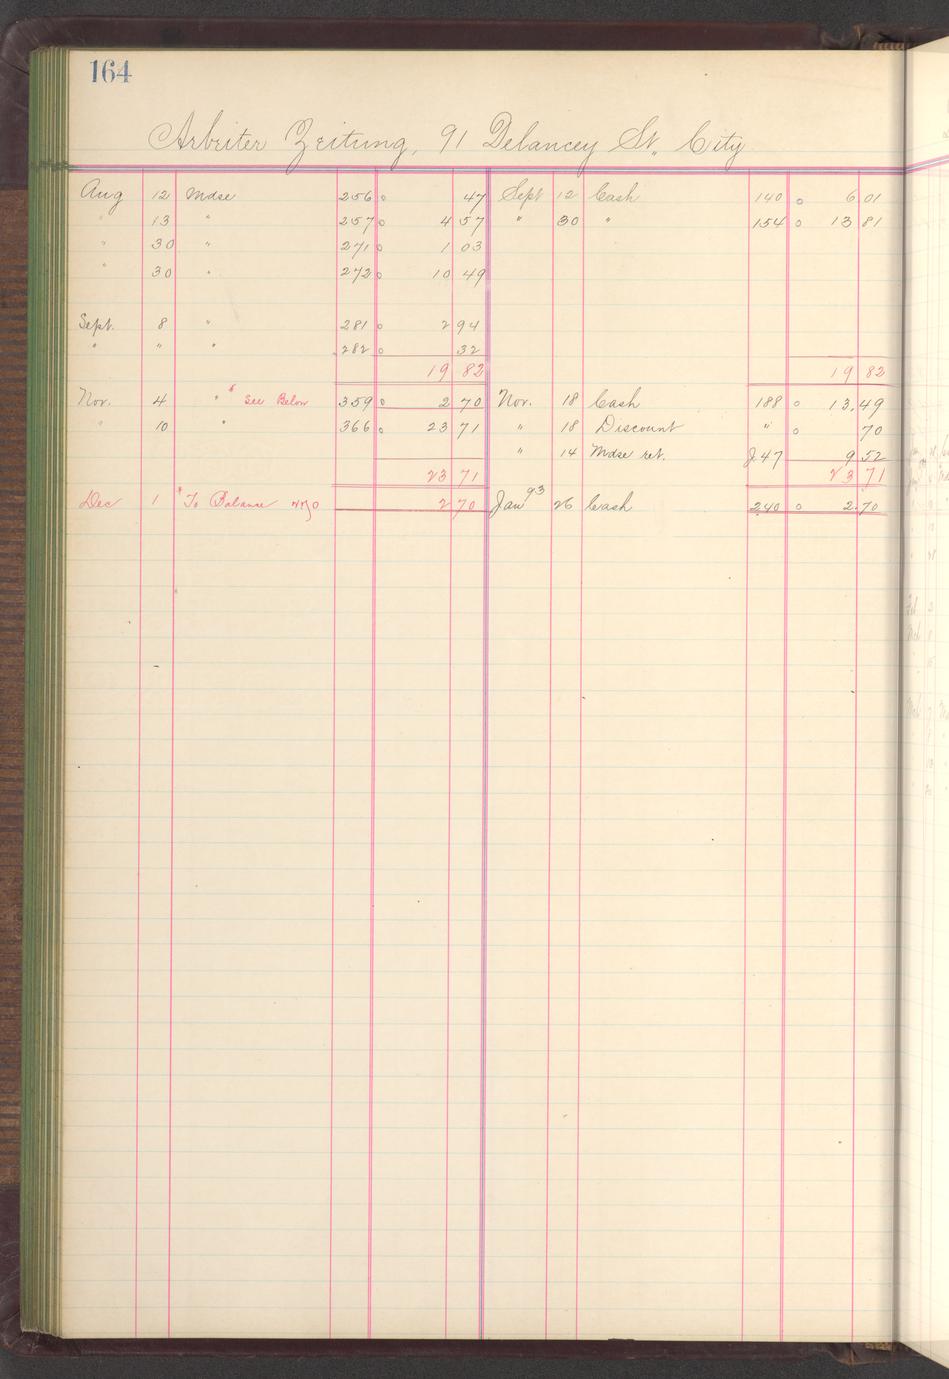 164
Arbeiter Zeitung, 91 Delancey St. City
Aug 12 Mdse 256 47 Sept 12 Cash 140 6 01
" 13 " 257 4 57 " 30 " 154 13 81
" 30 " 271 1 03
" 30 " 272 10 49
Sept. 8 " 281 2 94
" " " 282 32
19 82 19 82
Nov. 4 " See Below 359 2 70 Nov. 18 Cash 188 13.49
" 10 " 366 23 71 " 18 Discount " 70
" 14 Mdse ret. J.47 9 52
23 71 23 71
Dec 1 To Balance 2 70 Jan 93 26 Cash 240 2.70